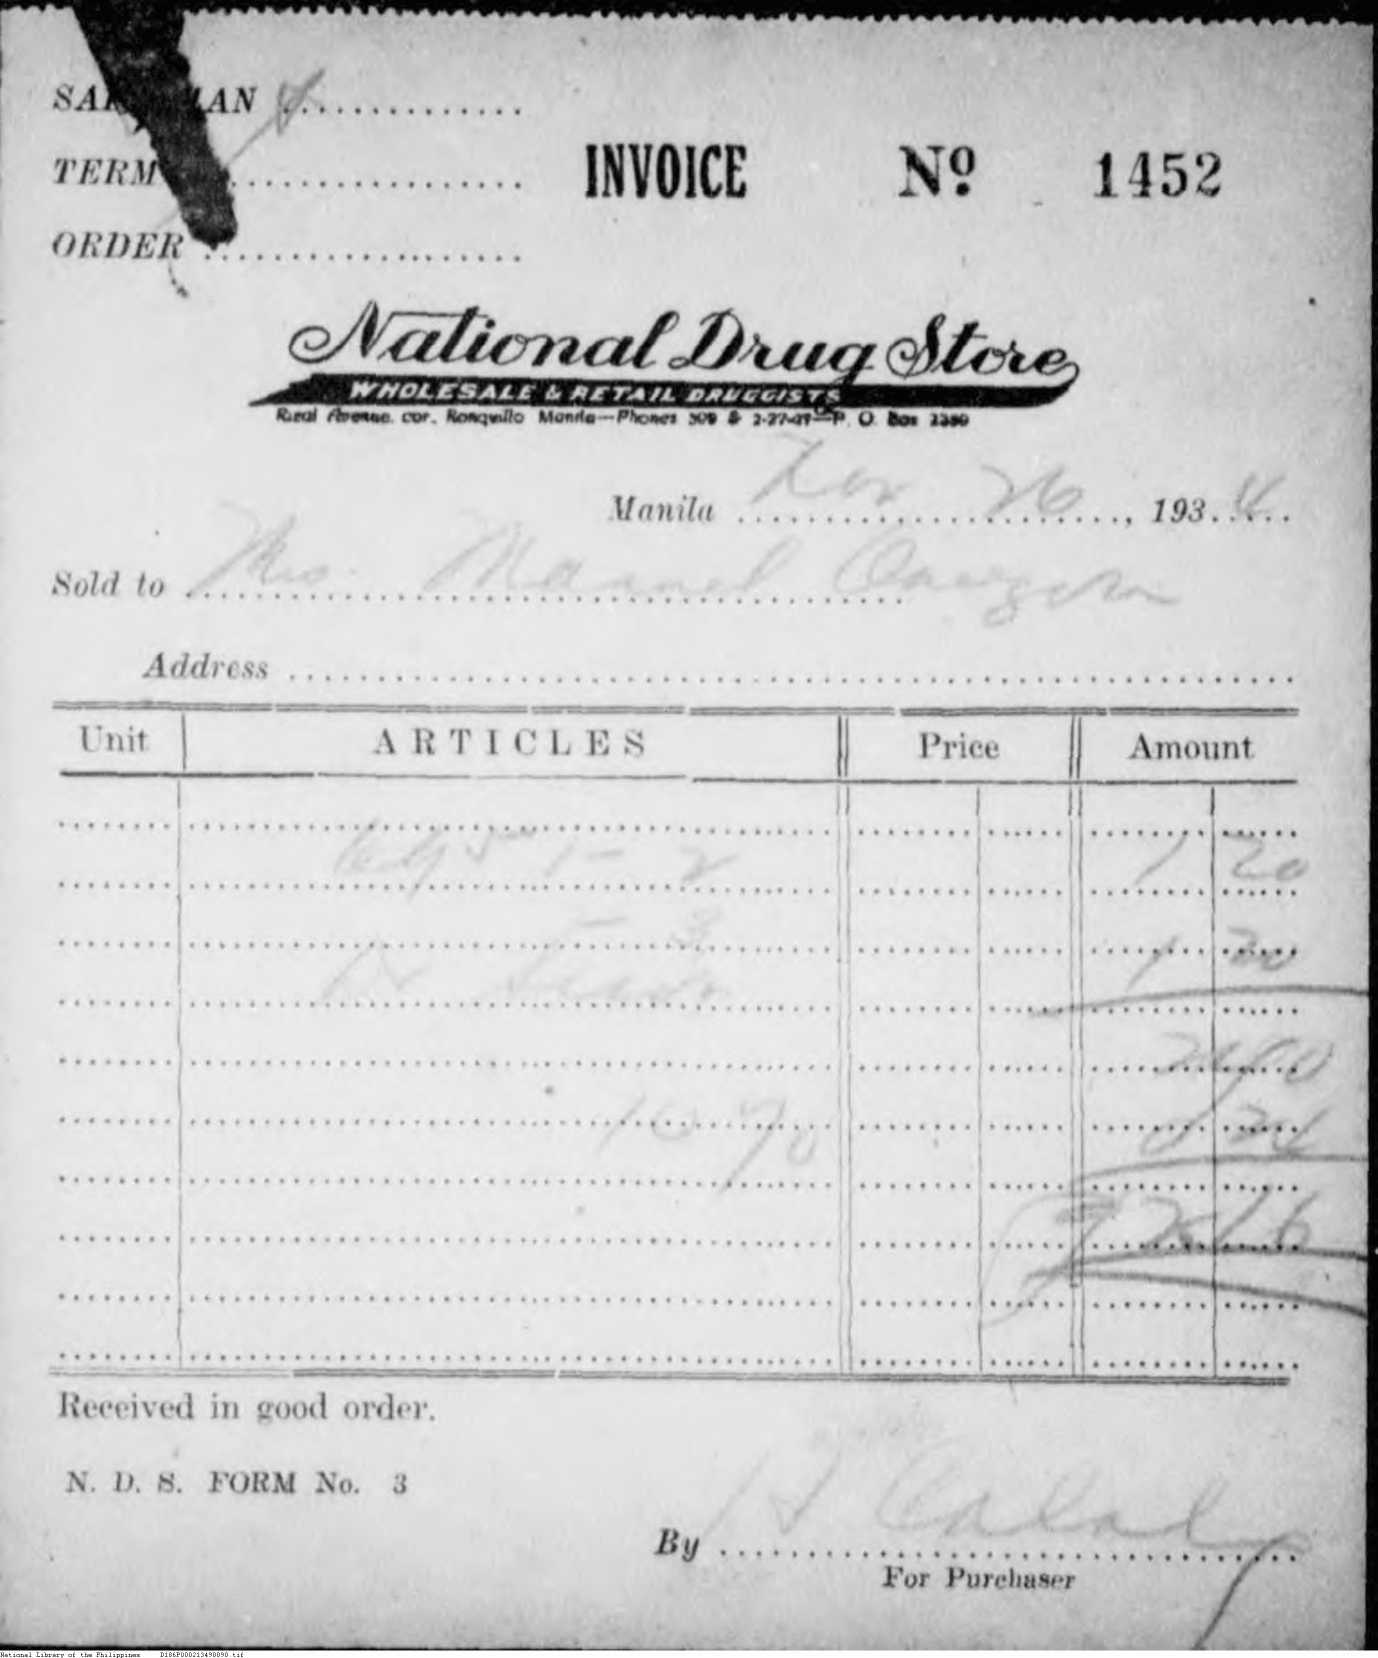 SALESMAN 4
TERM
ORDER
INVOICE Nº 1452
National Drug Store
WHOLESALE & RETAIL DRUGGISTS
Rizal Avenue. cor. Ronquillo Manila—Phones 509 & 2-27-47—P. O. Box
Manila 26, 1934
Sold to Mrs. Manuel
Address
Unit ARTICLES Price Amount
6951 - 2 1 20
- 3 1 20
2 40
10 %
24
2 16
Received in good order.
N. D. S. FORM No. 3
By
For Purchaser
National Library of the Philippines D186P000213490890.tif